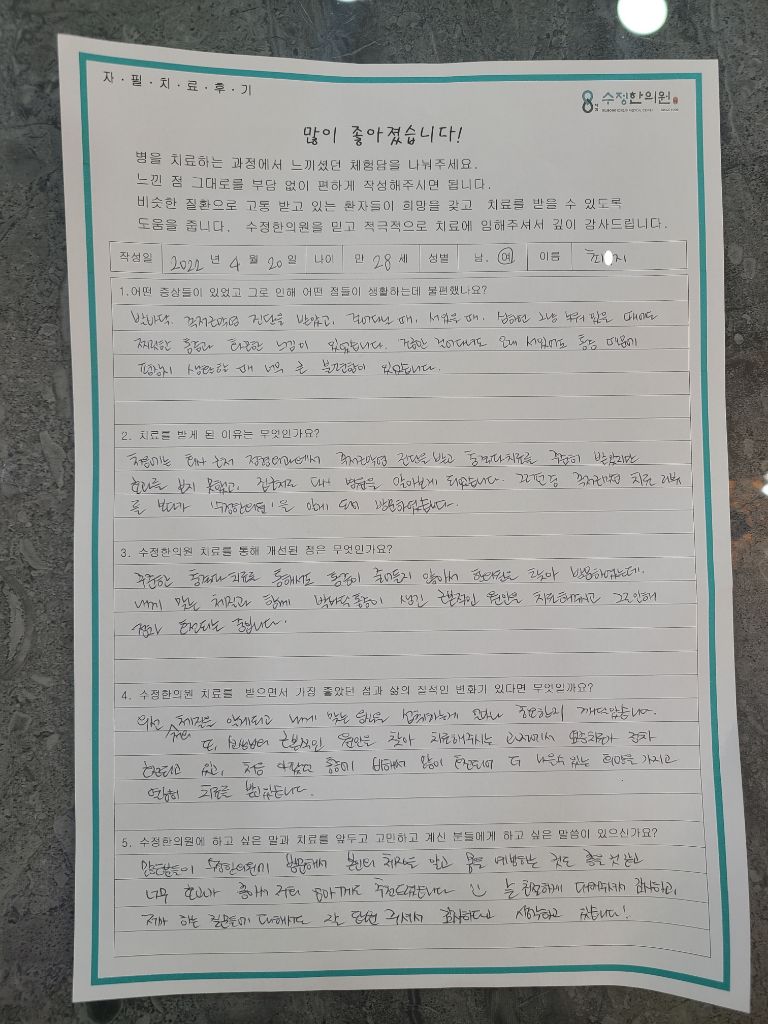 자·필·치·료·후·기
수정한의원
많이 좋아졌습니다!
병을 치료하는 과정에서 느끼셨던 체험담을 나눠주세요.
느낀 점 그대로를 부담 없이 편하게 작성해주시면 됩니다.
비슷한 질환으로 고통 받고 있는 환자들이 희망을 갖고 치료를 받을 수 있도록
도움을 줍니다. 수정한의원을 믿고 적극적으로 치료에 임해주셔서 깊이 감사드립니다.
작성일 2022 년 4 월 20 일 나이 만 28 세 성별 남. 여 이름 지
1.어떤 증상들이 있었고 그로 인해 어떤 점들이 생활하는데 불편했나요?
발바닥 족저근막염 진단을 받았고, 걸어다닐 때, 서있을 때, 심하면 그냥 누워 있을 때에도
찌릿한 통증과 뻐근한 느낌이 있었습니다. 조금만 걸어다녀도 오래 서있어도 통증 때문에
평상시 생활할 때 너무 큰 불편함이 있었습니다.
2. 치료를 받게 된 이유는 무엇인가요?
처음에는 회사 근처 정형외과에서 족저근막염 진단을 받고 충격파치료를 꾸준히 받았지만
효과를 보지 못했고, 집근처로 다시 병원을 알아보게 되었습니다. 그러던중 족저근막염 치료 리뷰
를 보다가 '수정한의원'을 알게 되어 방문하였습니다.
3. 수정한의원 치료를 통해 개선된 점은 무엇인가요?
꾸준한 충격파치료를 통해서도 통증이 줄어들지 않아서 한의원을 찾아 방문하였는데,
내게 맞는 체질과 함께 발바닥 통증이 생긴 근본적인 원인을 치료해주시고 그로인해
점차 호전되는 중입니다.
4. 수정한의원 치료를 받으면서 가장 좋았던 점과 삶의 질적인 변화가 있다면 무엇일까요?
우선 체질을 알게되고 내게 맞는 음식을 섭취하는게 얼마나 중요한지 깨달았습니다.
또, 근본적인 원인을 찾아 치료해주시는 과정에서 통증치료가 점차
호전되고 있고, 처음 아팠던 통증에 비해서 많이 호전되어 더 나을수 있는 희망을 가지고
열심히 치료를 받고있습니다.
5. 수정한의원에 하고 싶은 말과 치료를 앞두고 고민하고 계신 분들에게 하고 싶은 말씀이 있으신가요?
많은분들이 수정한의원에 방문해서 본인의 체질을 알고 몸을 예방하는 것도 좋을것 같고
너무 효과가 좋아서 저희 엄마께도 추천드렸습니다 늘 친절하게 대해주셔서 감사하고,
제가 하는 질문들에 대해서도 잘 답변 주셔서 감사하다고 생각하고 있습니다!